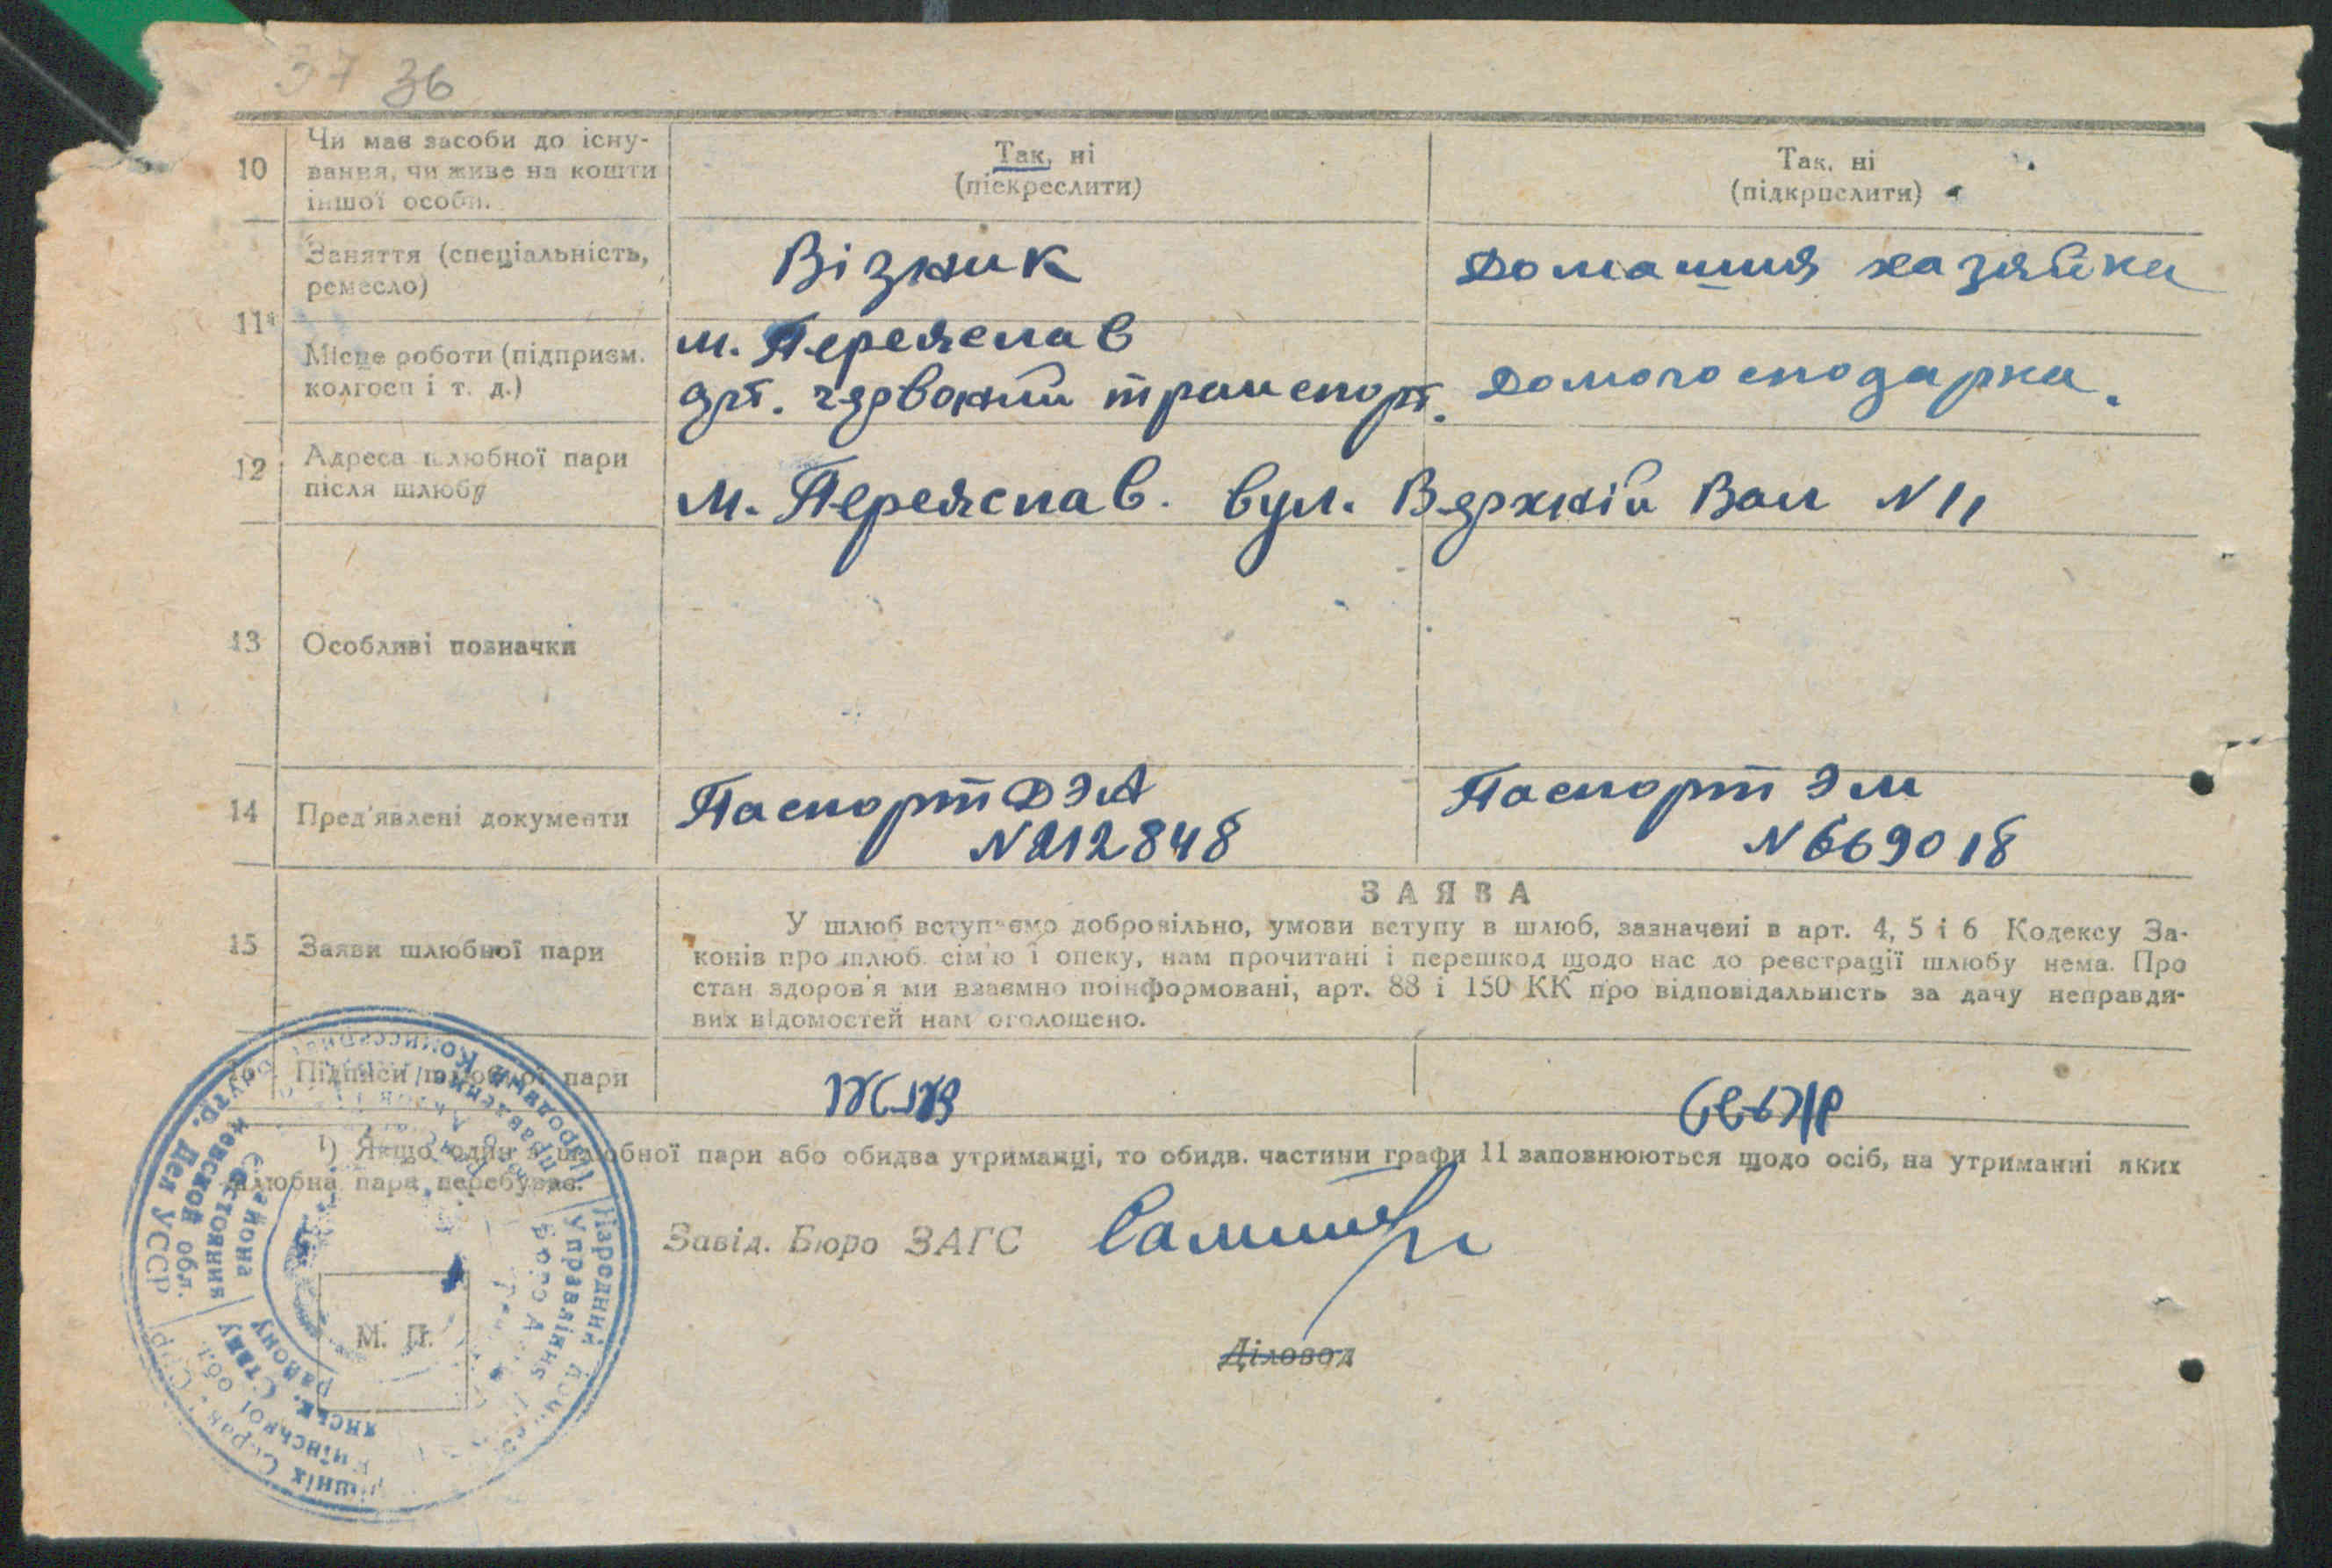 37 36
10
Чи має засоби до існу-
вання, чи живе на кошти
іншої особи.
Так, ні
(піекреслити)
Так, ні
(підкрислити)
11¹
Заняття (спеціальність,
ремесло)
Візник
Домашня хазяйка
Місце роботи (підприєм.
колгосп і т. д.)
м. Переяслав
арт. червоний транспорт.
Домогосподарка.
12
Адреса шлюбної пари
після шлюбу
м. Переяслав. вул. Верхній Вал N 11
13
Особливі позначки
14
Пред'явлені документи
Паспорт ДЭА
N 212848
Паспорт ЭМ
N 669018
15
Заяви шлюбної пари
ЗАЯВА
У шлюб вступаємо добровільно, умови вступу в шлюб, зазначені в арт. 4, 5 і 6 Кодексу За-
конів про шлюб. сім'ю і опеку, нам прочитані і перешкод щодо нас до реєстрації шлюбу нема. Про
стан здоров'я ми взаємно поінформовані, арт. 88 і 150 КК про відповідальність за дачу неправди-
вих відомостей нам оголошено.
16
Підписи шлюбної пари
¹) Якщо один з шлюбної пари або обидва утриманці, то обидв. частини графи 11 заповнюються щодо осіб, на утриманні яких
шлюбна пара перебуває.
Завід. Бюро ЗАГС
Діловод
М. П.